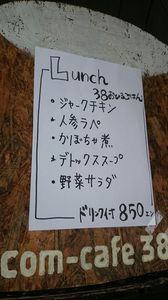 Lunch
38おひるごはん
・ジャークチキン
・人参ラペ
・かぼちゃ煮
・デトックススープ
・野菜サラダ
ドリンク付 850エン
com-cafe 38